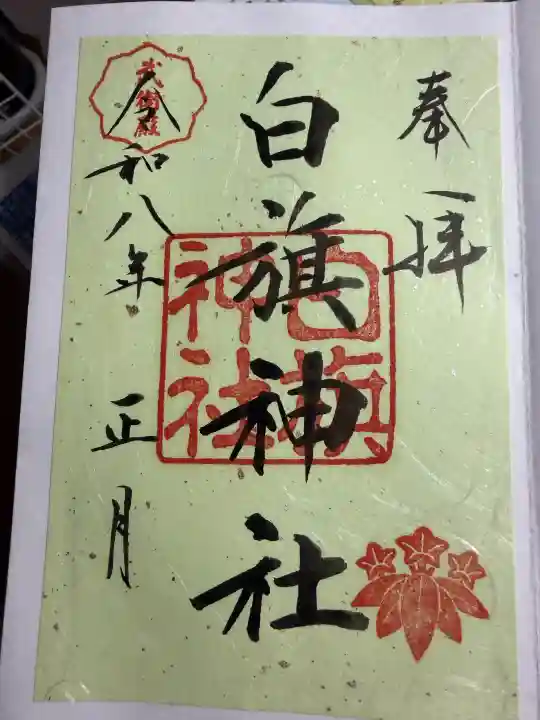 奉拝
白旗神社
白旗神社
武衛殿
令和八年 正月